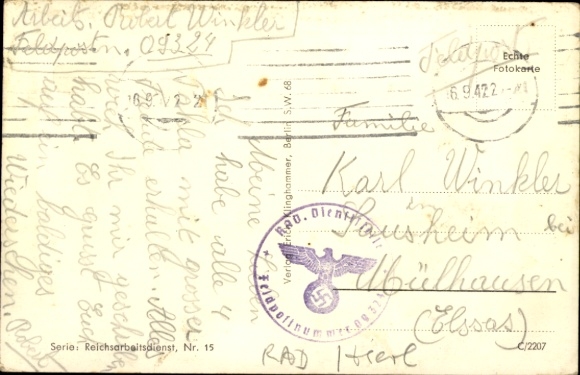 Arbeit. Robert Winkler
Feldpostn. 09324
Meine Lieben
Ich habe alle 4
mit grosser
erhalten. Alles
Ihr mir geschickt
habt. Es grüsst Euch
auf ein baldiges
Wiedersehen. Robert
Feldpost
Echte
Fotokarte
6.9.42.2
Familie
Karl Winkler
in
Sausheim bei
Mülhausen
(Elsass)
RAD. Dienststelle
Feldpostnummer 09324
Verlag Erich Klinghammer, Berlin S.W. 68
Serie: Reichsarbeitsdienst, Nr. 15
C/2207
RAD Hierl